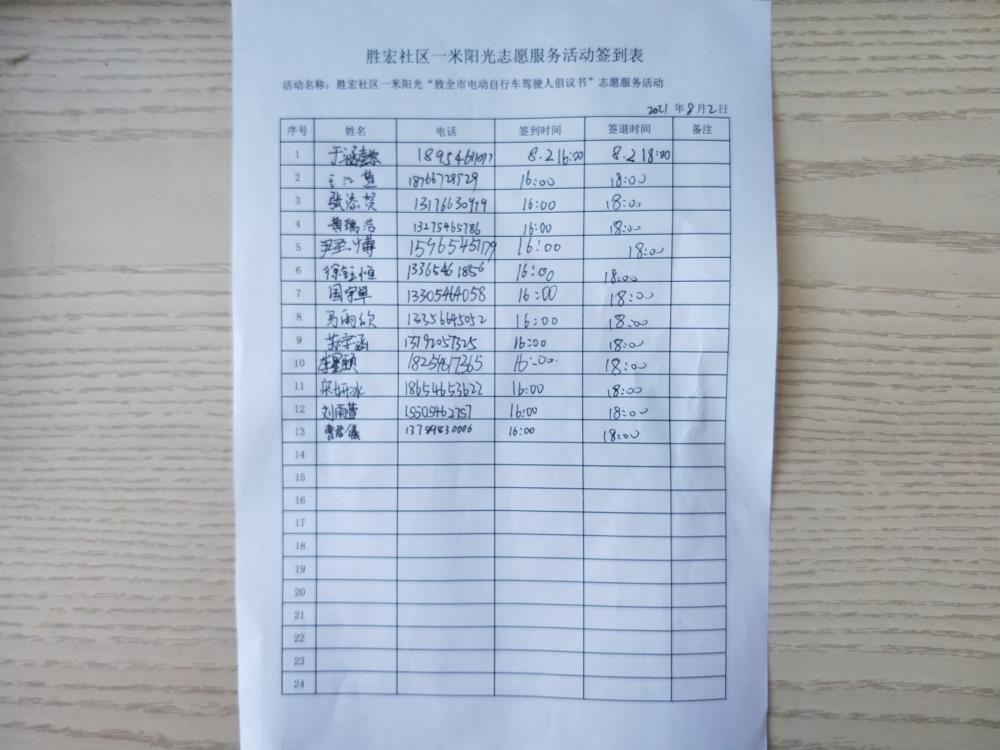 胜宏社区一米阳光志愿服务活动签到表
活动名称：胜宏社区一米阳光“致全市电动自行车驾驶人倡议书”志愿服务活动
2021 年 8 月 2 日
序号 姓名 电话 签到时间 签退时间 备注
1 8.2 16:00 8.2 18:00
2 16:00 18:00
3 张添契 13176630979 16:00 18:00
4 黄瑞浩 13275465786 16:00 18:00
5 15965457179 16:00 18:00
6 徐钰恒 13365461856 16:00 18:00
7 国宇卓 13305464058 16:00 18:00
8 马雨欣 13356645052 16:00 18:00
9 苏宇涵 13192057325 16:00 18:00
10 李星颐 18254617365 16:00 18:00
11 宋妍冰 18654653622 16:00 18:00
12 刘雨萱 15305462757 16:00 18:00
13 曹君儀 13789830006 16:00 18:00
14
15
16
17
18
19
20
21
22
23
24